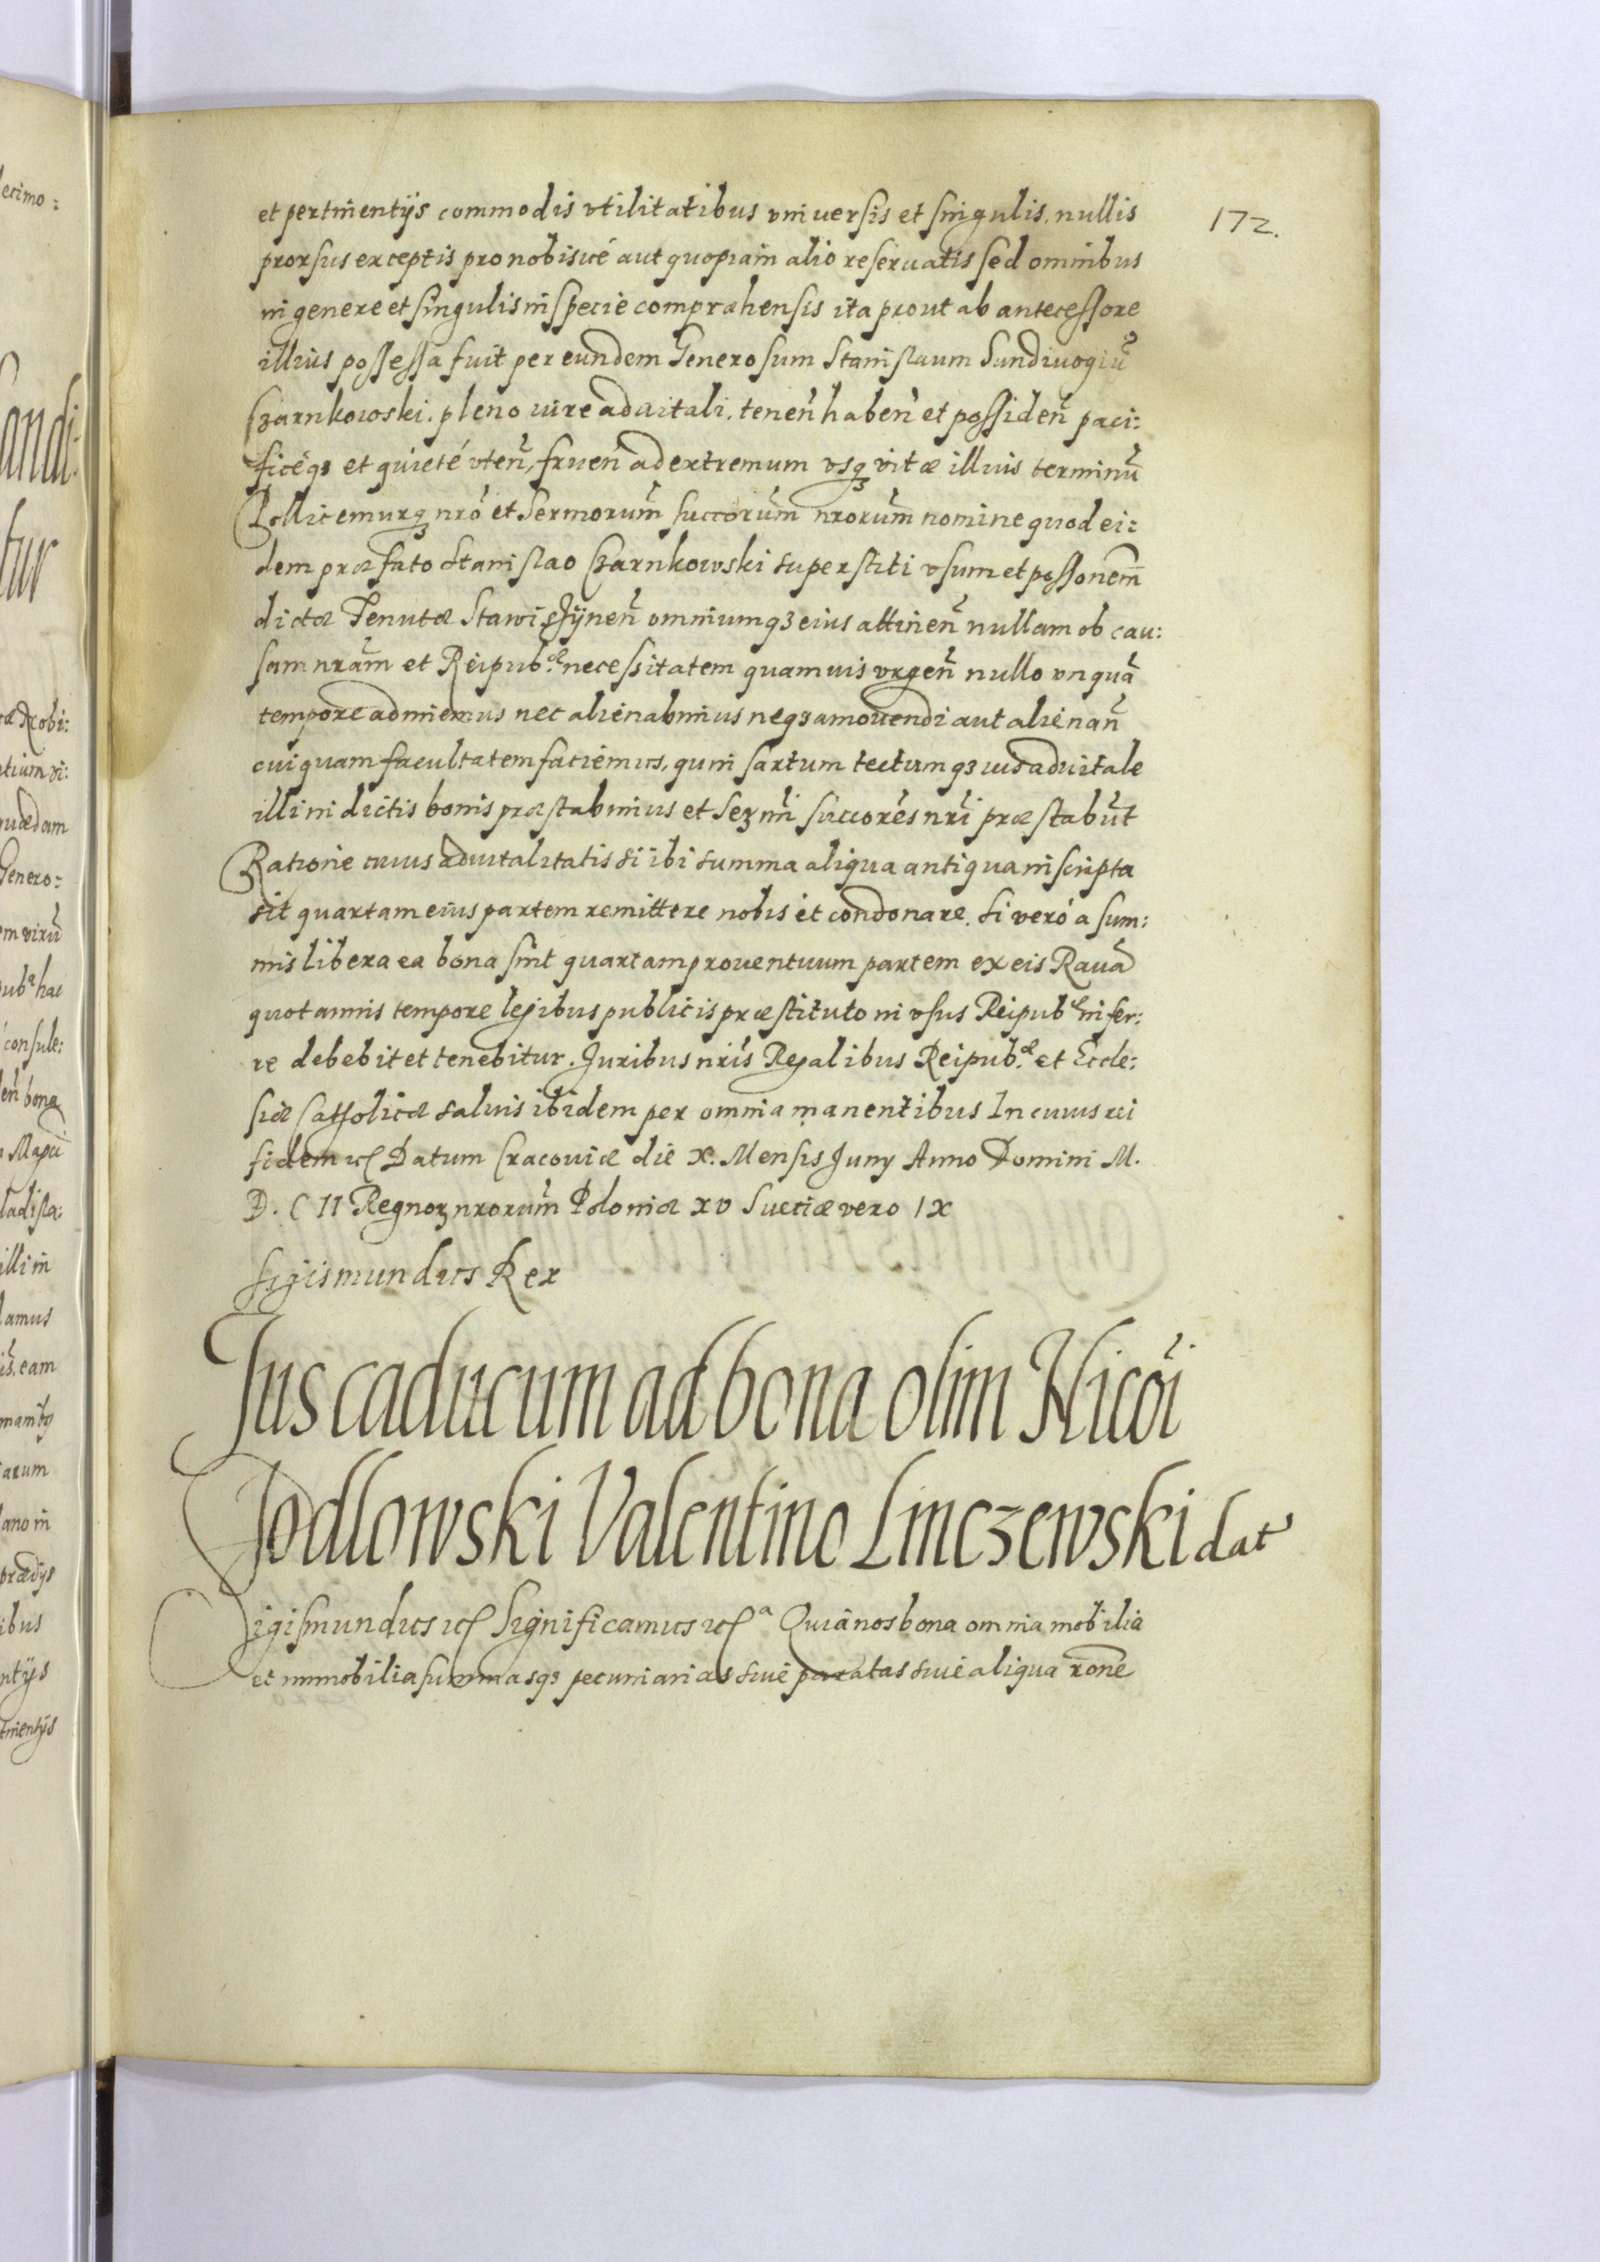 172.
et pertinentijs commodis vtilitatibus vniuersis et singulis, nullis
prorsus exceptis pro nobisué aut quopiam alio reseruatis sed omnibus
in genere et singulis in specie compræhensis ita prout ab antecessore
illius possessa fuit per eundem Generosum Stanislaum Sandiuogiū
Czarnkowski. pleno iure aduitali. tenen̄ haben̄ et possiden̄ paci:
ficéq3 et quieté vten̄, fruen̄ ad extremum vsq3 vitæ illius terminū
Pollicemurq3 nrō et Sermorum̄ succorum̄ nrorum̄ nomine quod ei:
dem præfato Stanislao Czarnkowski superstiti vsum et possonem̄
dictæ Tenutæ Stawiszÿnen̄ omniumq3 eius attinen̄ nullam ob cau:
sam nrām et Reipub.æ necessitatem quamuis vrgen̄ nullo vnquā
tempore adimemus nec alienabimus neq3 amouendi aut alienan̄
cuiquam facultatem faciemus, quin sartum tectumq3 ius aduitale
illi in dictis bonis præstabimus et Serm̄i succorēs nrī præstabūt
Ratione cuius aduitalitatis si ibi summa aliqua antiqua inscripta
sit quartam eius partem remittere nobis et condonare. Si veró a sum:
mis libera ea bona sint quartam prouentuum partem ex eis Rauā
quotannis tempore legibus publicis præstituto in vsus Reipub.æ infer:
re debebit et tenebitur. Juribus nrīs Regalibus Reipub.æ et Eccle:
siæ Catholicæ saluis ibidem per omnia manentibus In cuius rei
fidem etc Datum Cracouiæ die X. Mensis Juny Anno Domini M.
D. C II Regnor3 nrorum̄ Poloniæ XV Sueciæ vero IX
Sigismundus Rex
Jus caducum ad bona olim Nicōi
Jodlowski Valentino Linczewski dat
Sigismundus etc Significamus etc a Quia nos bona omnia mobilia
et immobilia summasq3 pecuniarias siue paratas siue aliqua ronē